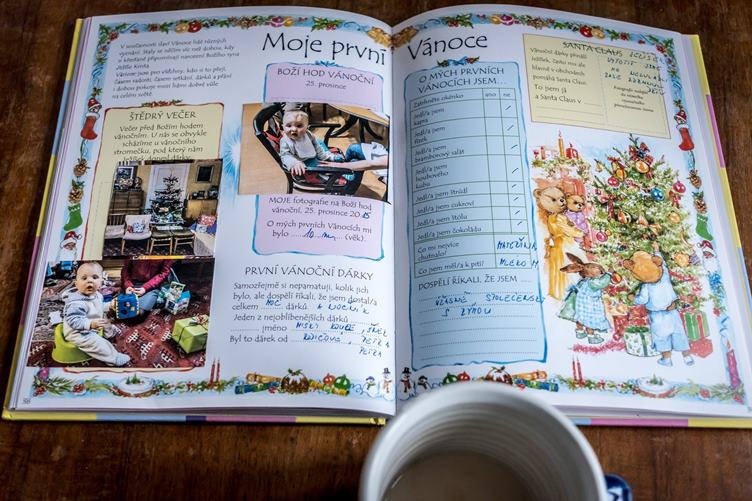 Moje první Vánoce
V současnosti slaví Vánoce lidé různých
vyznání. Staly se něčím víc než dobou, kdy
si křesťané připomínají narození Božího syna
Ježíše Krista.
Vánoce jsou pro všechny, kdo si to přejí,
časem radosti, časem setkání, dárků a přání
i dobou pokoje mezi lidmi dobré vůle
na celém světě.
ŠTĚDRÝ VEČER
Večer před Božím hodem
vánočním. U nás se obvykle
scházíme u vánočního
stromečku, pod který nám
Ježíšek donesl dárky
BOŽÍ HOD VÁNOČNÍ
25. prosince
MOJE fotografie na Boží hod
vánoční, 25. prosince 2015
O mých prvních Vánocích mi
bylo 10 m (věk).
PRVNÍ VÁNOČNÍ DÁRKY
Samozřejmě si nepamatuji, kolik jich
bylo, ale dospělí říkali, že jsem dostal/a
celkem MOC dárků.
Jeden z nejoblíbenějších dárků
jméno
Byl to dárek od
PETRA
PETRA
O MÝCH PRVNÍCH
VÁNOCÍCH JSEM...
Zatrhněte okénko ano ne
Jedl/a jsem
kapra
Jedl/a jsem
řízek
Jedl/a jsem
bramborový salát
Jedl/a jsem
houbového
kubu
Jedl/a jsem
Jedl/a jsem cukroví
Jedl/a jsem štólu
Jedl/a jsem čokoládu
Co mi nejvíce
chutnalo?
Co jsem měl/a k pití? MLÉKO
DOSPĚLÍ ŘÍKALI, ŽE JSEM
S RÝMOU
SANTA CLAUS
Vánoční dárky přináší
Ježíšek, často mu ale
hlavně v obchodech
pomáhá Santa Claus.
To jsem já
a Santa Claus v